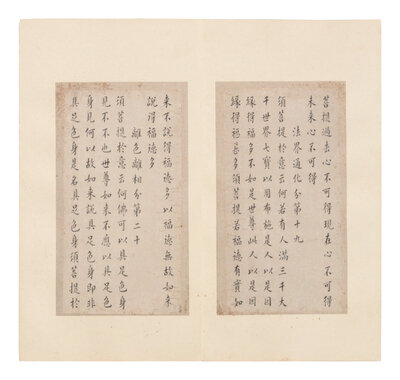 菩提過去心不可得現在心不可得
未來心不可得
法界通化分第十九
須菩提於意云何若有人滿三千大
千世界七寶以用布施是人以是因
緣得福多不如是世尊此人以是因
緣得福甚多須菩提若福德有實如
來不說得福德多以福德無故如來
說得福德多
離色離相分第二十
須菩提於意云何佛可以具足色身
見不不也世尊如來不應以具足色
身見何以故如來說具足色身即非
具足色身是名具足色身須菩提於